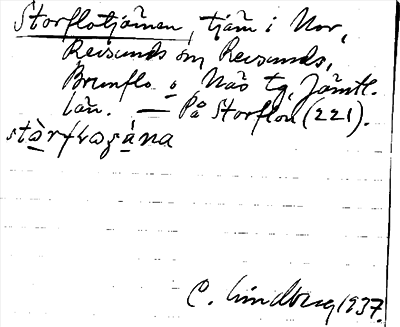 Storflotjärnen, tjärn i Nor,
Revsunds sn, Revsunds,
Brunflo o. Näs tg, Jämtl.
län. — På Storflon (221).
C. Lindberg 1937.